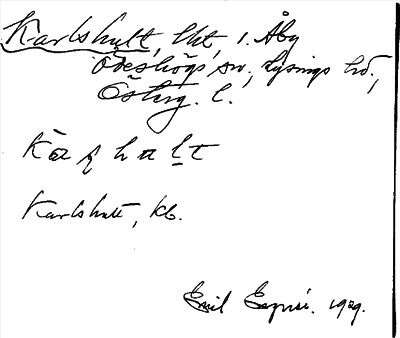 Karlshult, lht, i. Åby
Ödeshögs sn., Lysings hd.,
Österg. l.
Karlshult, kb.
Emil 1929.